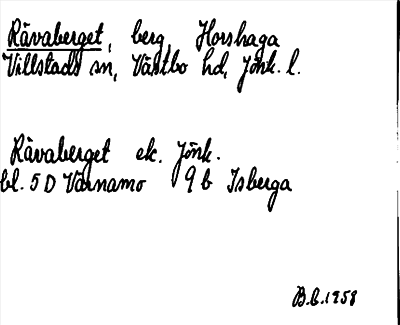 Rävaberget, berg, Horshaga
Villstads sn, Västbo hd, Jönk. l.
Rävaberget ek. Jönk.
bl. 5 D Värnamo 9 b Isberga
B.C. 1958